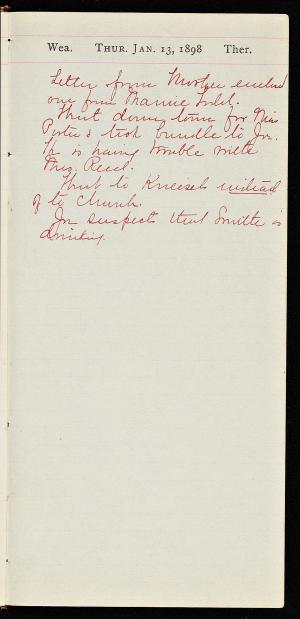 Wea. Thur. Jan. 13, 1898 Ther.
Letter from Mother enclosed
one from Mamie
Went down town for Miss
Porter & took bundle to Jn.
He is having trouble with
Reed.
Went to Kneisel instead
of to church.
Jn suspects that Smith is
drinking.